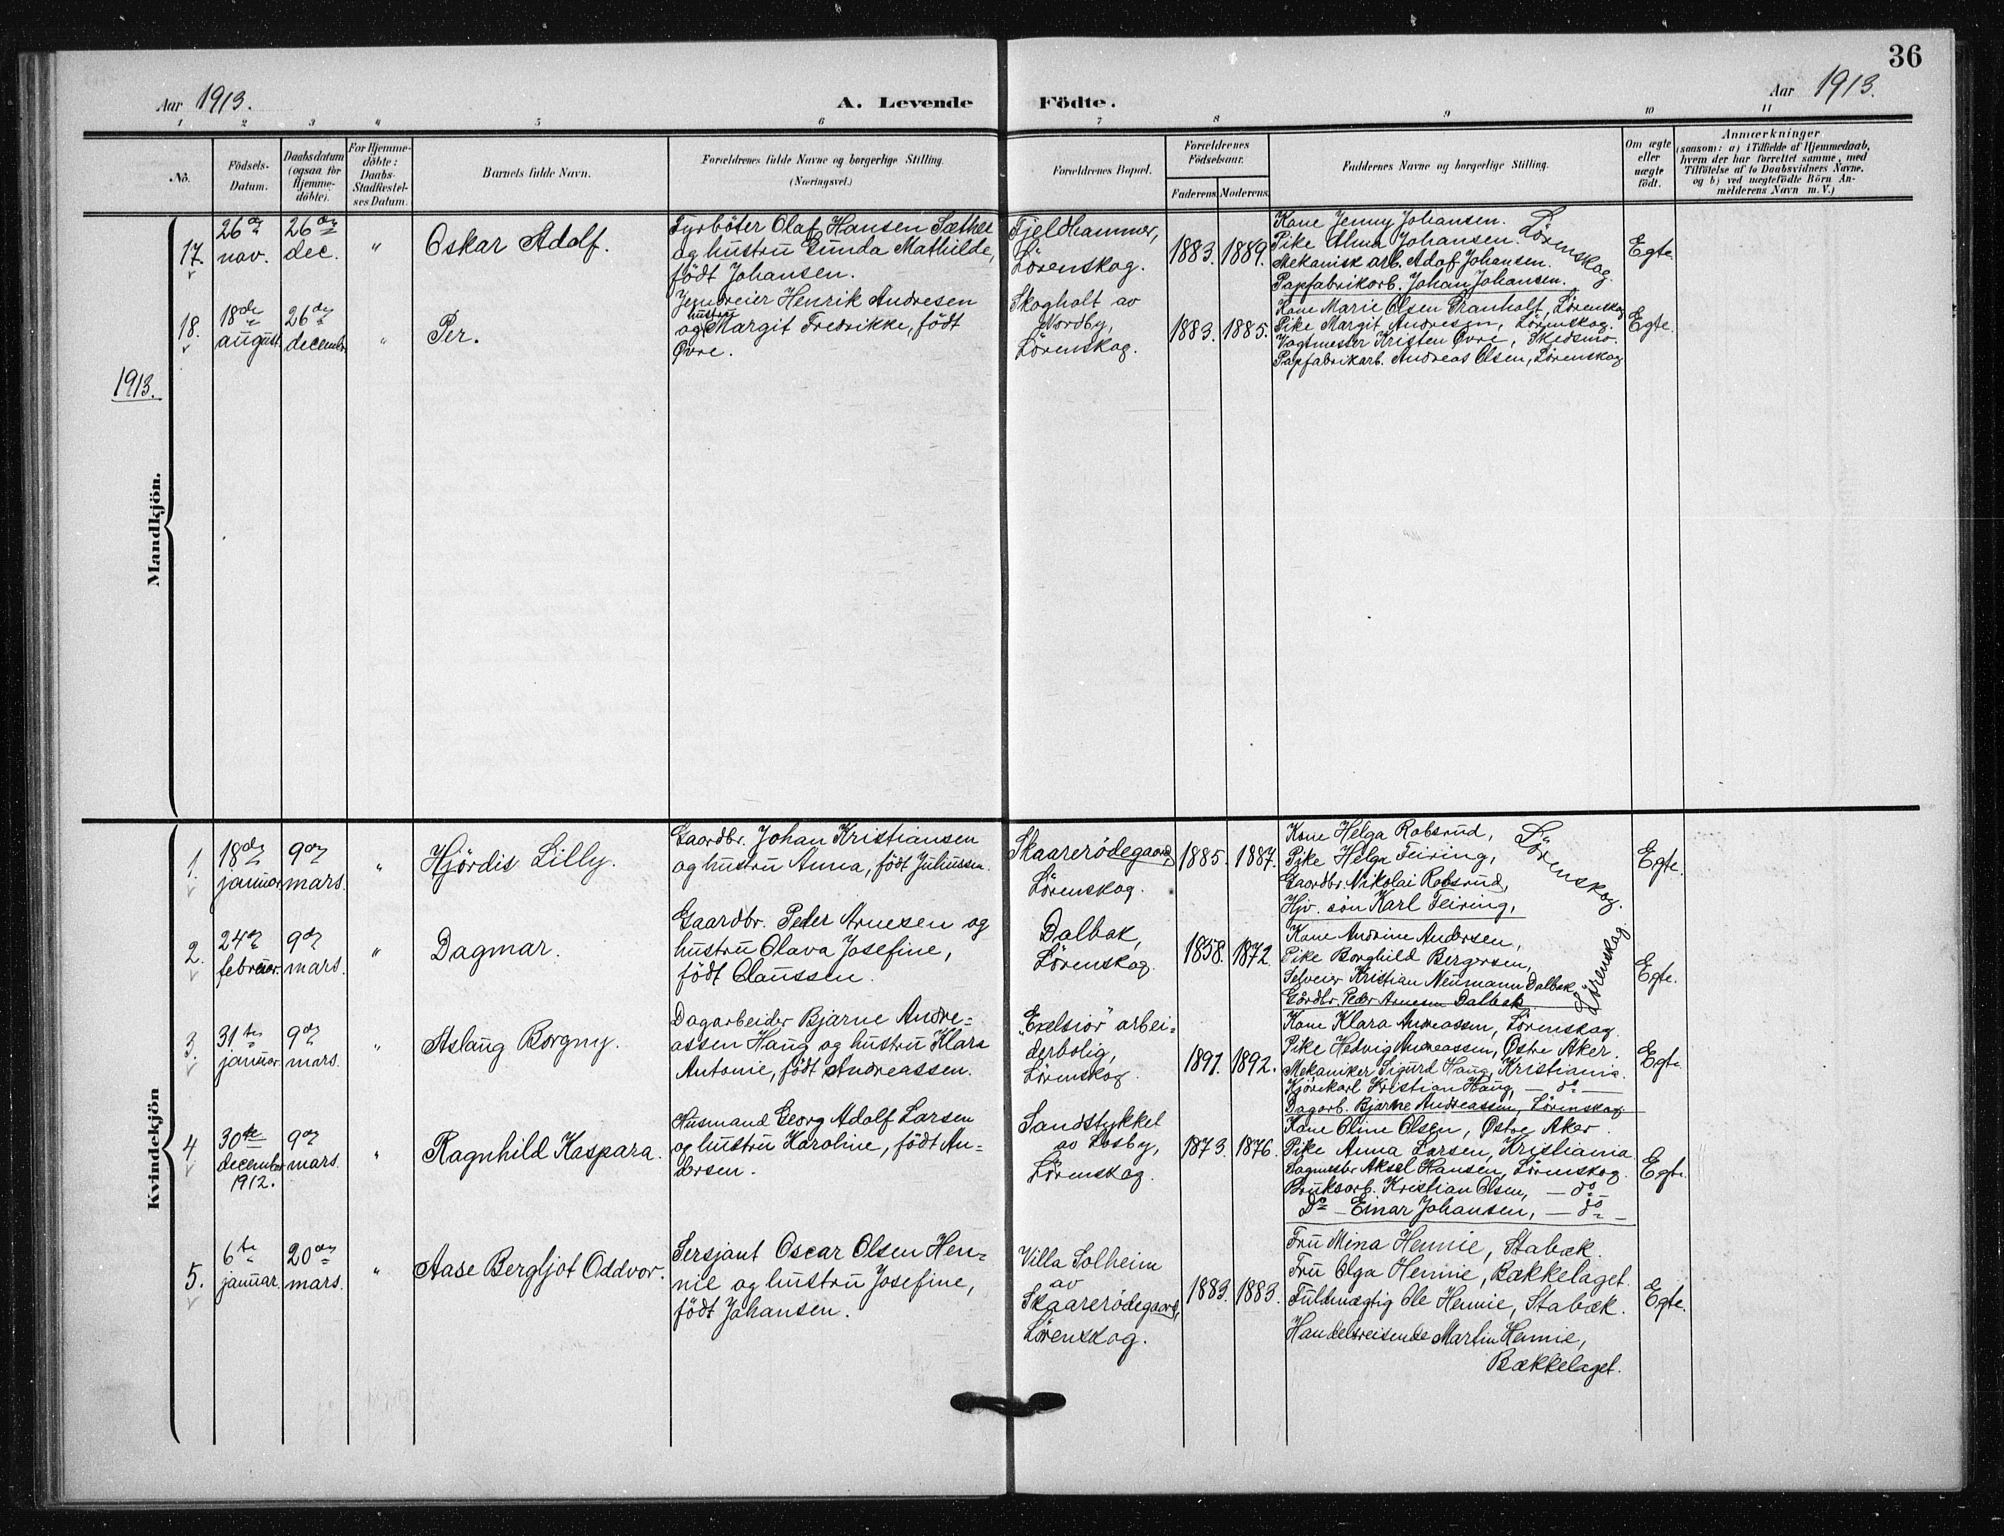 36
Aar 1913.
A. Levende Födte.
Aar 1913.
1 2 3 4 5 6 7 8 9 10 11
No.
Födsels-
Datum.
Daabsdatum
(ogsaa for
Hjemme-
döbte).
For Hjemme-
döbte:
Daabs-
Stadfæstel-
ses Datum.
Barnets fulde Navn.
Forældrenes fulde Navne og borgerlige Stilling.
(Næringsvei.)
Forældrenes Bopæl.
Forældrenes
Födselsaar.
Faderens. Moderens.
Faddernes Navne og borgerlige Stilling.
Om ægte
eller
uægte
födt.
Anmærkninger
(saasom: a) i Tilfælde af Hjemmedaab,
hvem der har forrettet samme, med
Tilföielse af to Daabsvidners Navne,
og b) ved uægtefödte Börn An-
melderens Navn m. V.)
1913.
Mandkjön.
17.
26de
nov.
26de
dec.
"
Oskar Adolf.
Fyrböter Olaf Hansen Sæther
og hustru Gunda Mathilde,
födt Johansen.
Fjeldhammer,
Lörenskog.
1883. 1889.
Kone Jenny Johansen.
Pike Alma Johansen.
Mekanisk arb. Adolf Johansen.
Papfabrikarb. Johan Johansen.
Lörenskog.
Egte.
18.
18de
august
26de
decembr
"
Per.
Jegermeier Henrik Andresen
hustru
og Margit Fredrikke, födt
Øvre.
Skogholt av
Nordby,
Lörenskog.
1883. 1885.
Kone Marie Olsen Granholt, Lörenskog
Pike Margit Andresen, Lörenskog.
Vagtmester Kristen Øvre, Skedsmo.
Papfabrikarb. Andreas Olsen, Lörenskog
Egte.
Kvindekjön
1.
18de
januar
9de
mars.
"
Hjördis Lilly.
Gaardbr. Johan Kristiansen
og hustru Anna, födt Juliussen.
Skaarerødegaard,
Lörenskog.
1885. 1887.
Kone Helga Robsrud,
Pike Helga Feiring,
Gaardbr. Nikolai Robsrud,
Hjv. sön Karl Feiring,
Lörenskog.
Egte.
2.
24de
februar.
9de
mars.
"
Dagmar.
Gaardbr. Peder Arnesen og
hustru Olava Josefine,
födt Claussen.
Dalbak,
Lörenskog.
1858. 1872.
Kone Andrine Andersen,
Pike Borghild Bergersen,
Selveier Kristian Neumann Dalbak
Gårdbr. Peder Arnesen Dalbak
Lörenskog
Egte.
3.
31te
januar.
9de
mars.
"
Aslaug Borgny.
Dagarbeider Bjarne Andre-
assen Haug og hustru Klara
Antonie, födt Andreassen.
"Exelsior" arbei-
derbolig,
Lörenskog.
1891. 1892.
Kone Klara Andreassen, Lörenskog.
Pike Hedvig Andreassen, Østre Aker.
Mekaniker Sigurd Haug, Kristiania.
Kjörekarl Kristian Haug, — do —
Dagarb. Bjarne Andreassen, Lörenskog.
Egte.
4
30te
december
1912.
9de
mars.
"
Ragnhild Kaspara.
Husmand Georg Adolf Larsen
og hustru Karoline, födt An-
dersen.
Sandstykket
av Losby,
Lörenskog.
1873. 1876.
Kone Oline Olsen, Østre Aker.
Pike Anna Larsen, Kristiania
Sagmester Aksel Hansen, Lörenskog.
Bruksarb. Kristian Olsen, — do —
Do — Einar Johansen, — do —
Egte.
5.
6te
januar.
20de
mars.
"
Aase Bergljot Oddvor.
Sersjant Oscar Olsen Hen-
nie og hustru Josefine,
födt Johansen.
Villa Solheim
av
Skaarerødegaard,
Lörenskog.
1883. 1883.
Fru Mina Hennie, Stabæk.
Fru Olga Hennie, Bækkelaget.
Fuldmægtig Ole Hennie, Stabæk.
Handelsreisende Martin Hennie,
Bækkelaget.
Egte.